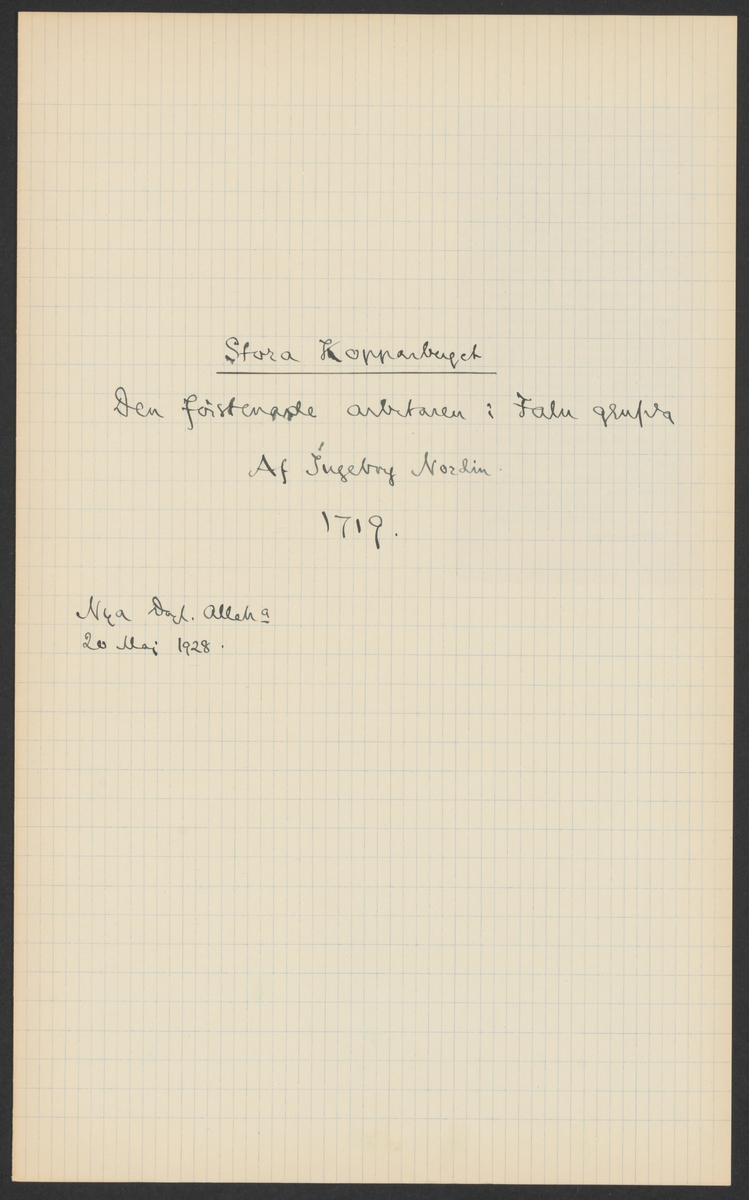 Stora Kopparberget
Den förstenade arbetaren i Falu gruva
Af Ingeborg Nordin.
1719.
Nya Dagl. Alleha
20 Maj 1928.